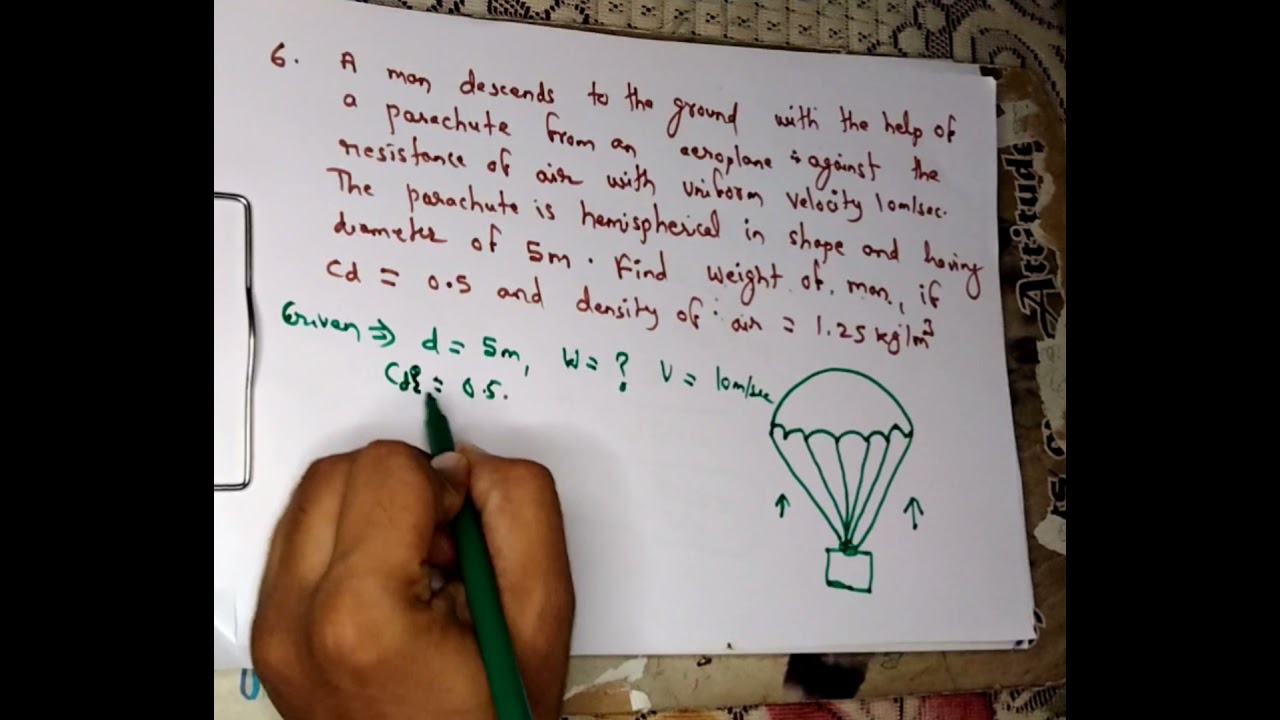 6. A man descends to the ground with the help of
a parachute from an aeroplane against the
resistance of air with uniform velocity 10m/sec.
The parachute is hemispherical in shape and having
diameter of 5m. Find weight of man, if
Cd = 0.5 and density of air = 1.25 kg/m³
Given ⇒ d = 5m, W = ? V = 10m/sec
= 0.5.
Attitude